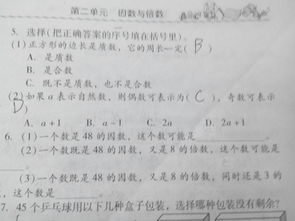 第二单元 因数与倍数
5. 选择(把正确答案的序号填在括号里):
(1)正方形的边长是质数,它的周长一定( B )
A. 是质数
B. 是合数
C. 既不是质数,也不是合数
(2)如果 a 表示自然数,则偶数可表示为( C ),奇数可表示
D)
A. a+1 B. a−1 C. 2a D. 2a+1
6. (1)一个数是 48 的因数,这个数可能是
(2)一个数既是 48 的因数,又是 8 的倍数,这个数可能是
(3)一个数既是 48 的因数,又是 8 的倍数,同时还是 3 的
,这个数是
7. 45 个乒乓球用以下几种盒子包装,选择哪种包装没有剩余?